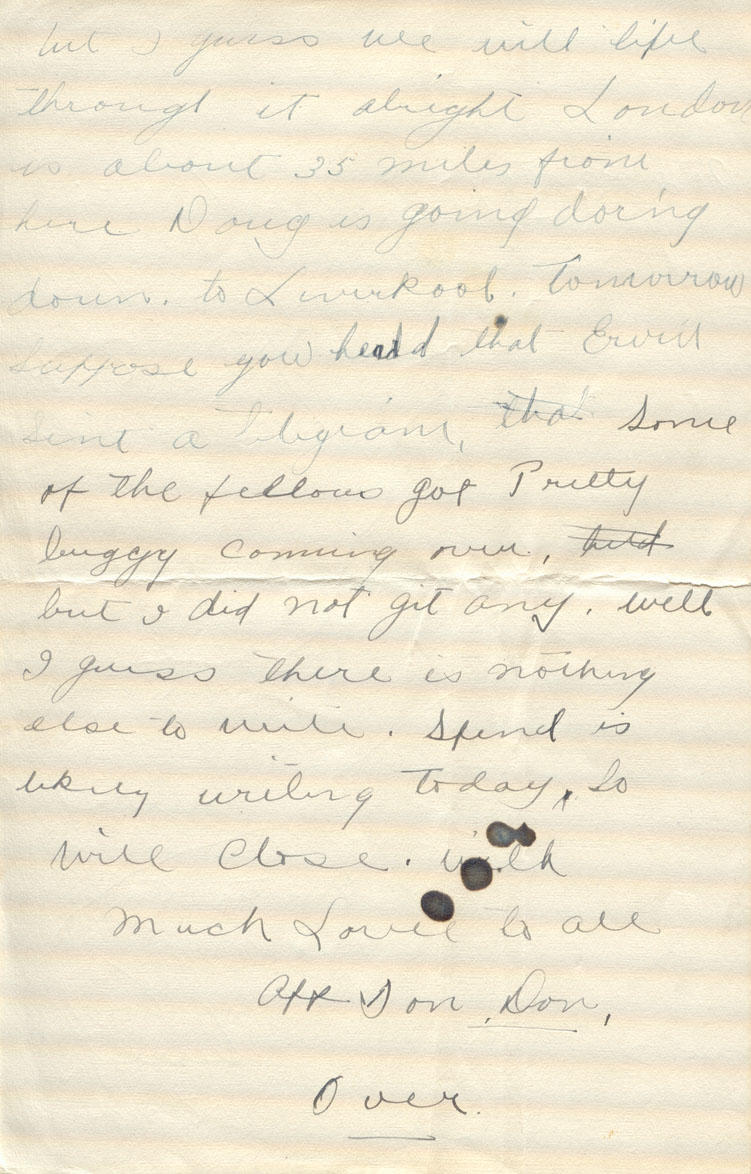 but I guess we will life
through it alright London
is about 35 miles from
here Doug is going
down. to Liverpool. Tomorrow
Suppose you heard that
sent a Telegram, that some
of the fellows got Pretty
buggy coming over,
but I did not git any. well
I guess there is nothing
else to write. is
likely writing today, So
will Close. with
Much Love to all
Aff Son, Don,
Over.